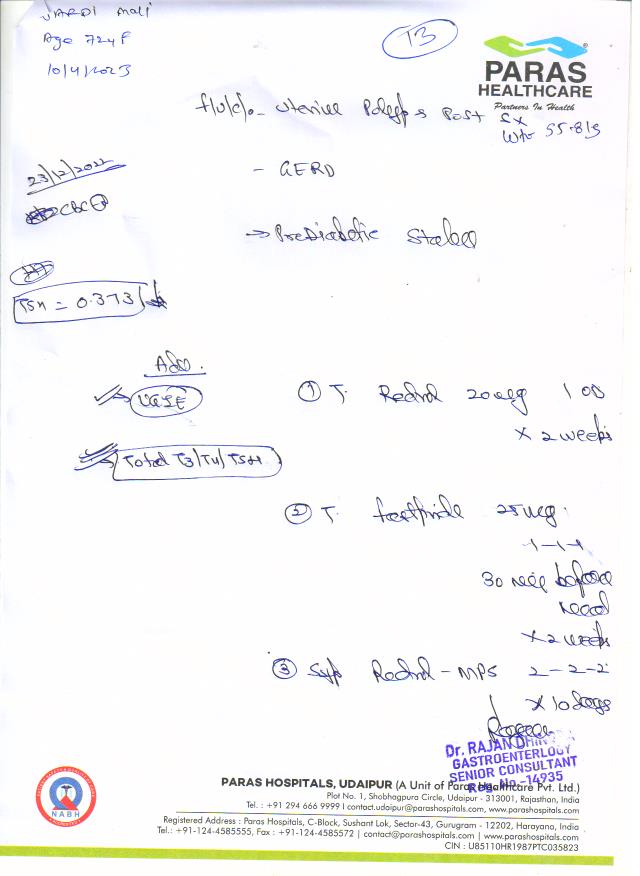 VARDI Mali
Age 72y F
10/4/2023
T3
PARAS
HEALTHCARE
Partners In Health
f/u/c/o - Uterine Polyp s Post Sx
Wt 55.8
- GERD
→ PreDiabetic
23/12/2022
CBC
TSH = 0.373
Adv.
UGIE
Total T3/T4/TSH
① T. 20mg 1 OD
x 2 weeks
② T. 25mg
1-1-1
30 before
x 2 weeks
③ Syp - MPS 2-2-2
x 10 days
Dr. RAJAN
GASTROENTERLOGY
SENIOR CONSULTANT
Reg. No.-14935
NABH
PARAS HOSPITALS, UDAIPUR (A Unit of Paras Healthcare Pvt. Ltd.)
Plot No. 1, Shobhagpura Circle, Udaipur - 313001, Rajasthan, India
Tel. : +91 294 666 9999 I contact.udaipur@parashospitals.com, www.parashospitals.com
Registered Address : Paras Hospitals, C-Block, Sushant Lok, Sector-43, Gurugram - 12202, Harayana, India
Tel.: +91-124-4585555, Fax : +91-124-4585572 | contact@parashospitals.com | www.parashospitals.com
CIN : U85110HR1987PTC035823